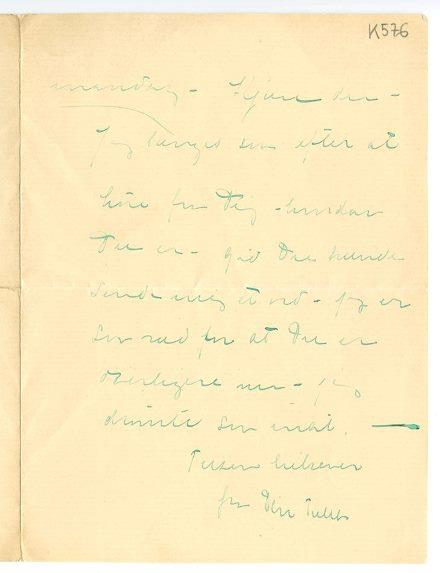 K576
mandag - Kjære du -
Jeg længes saa efter at
høre fra Dig - hvordan
Du er - gid Du kunde
sende mig et ord - jeg er
saa ræd for at Du er
daarligere nu - jeg
drømte saa inat.
Tusen hilsener
fra Din Tulla